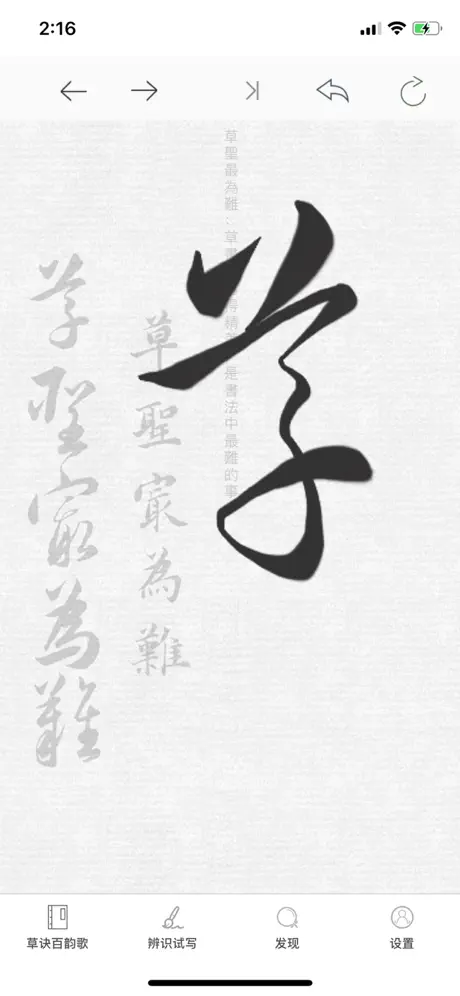 2:16
草
草聖最為難：草書
得精
是書法中最難的事
草聖㝡為難
草聖㝡為難
草诀百韵歌
辨识试写
发现
设置